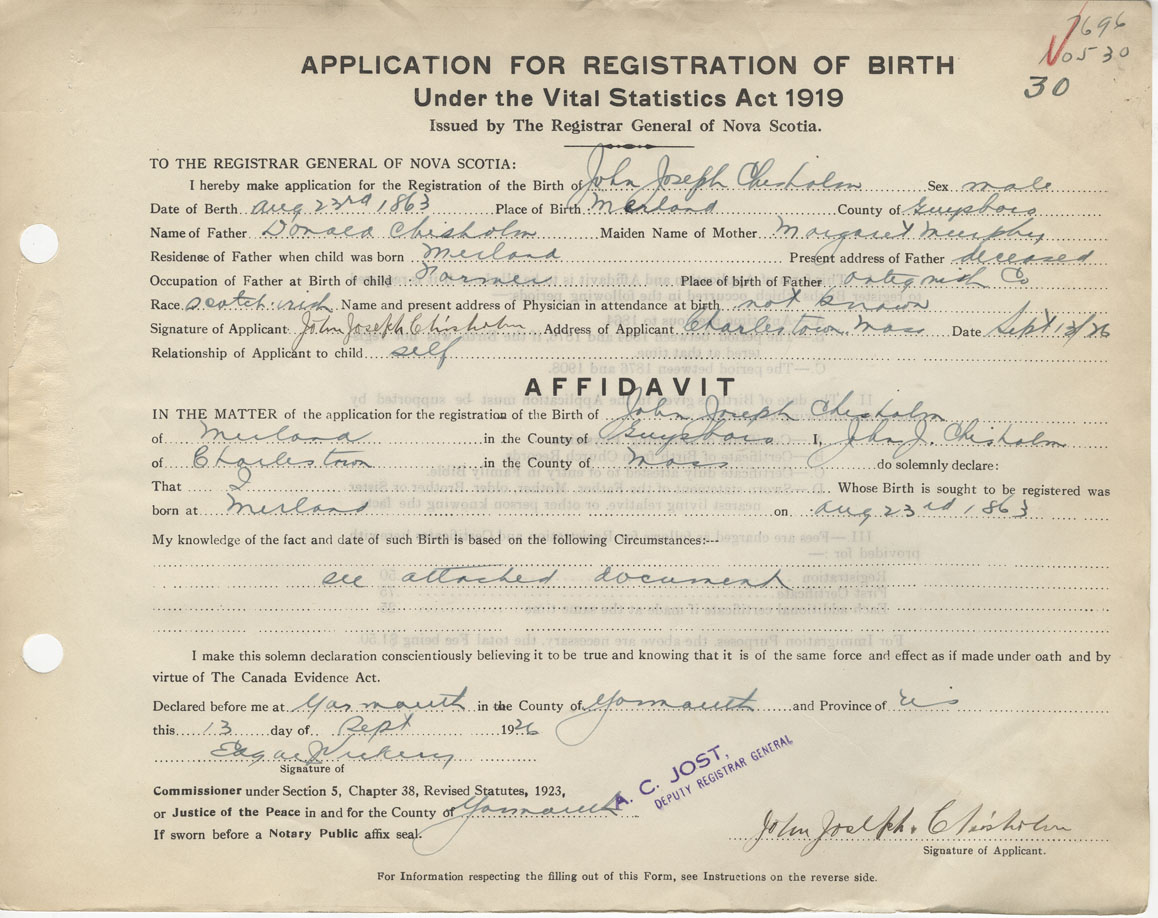 7696
No 530
30
APPLICATION FOR REGISTRATION OF BIRTH
Under the Vital Statistics Act 1919
Issued by The Registrar General of Nova Scotia.
TO THE REGISTRAR GENERAL OF NOVA SCOTIA:
I hereby make application for the Registration of the Birth of John Joseph Chisholm Sex male
Date of Berth Aug 23rd 1863 Place of Birth Merland County of Guysboro
Name of Father Donald Chisholm Maiden Name of Mother Margaret Murphy
Residense of Father when child was born Merland Present address of Father deceased
Occupation of Father at Birth of child Farmer Place of birth of Father Antegnish Co
Race scotch-irish Name and present address of Physician in attendance at birth not known
Signature of Applicant John Joseph Chisholm Address of Applicant Charlestown Mass Date Sept 13/26
Relationship of Applicant to child self
AFFIDAVIT
IN THE MATTER of the application for the registration of the Birth of John Joseph Chisholm
of Merland in the County of Guysboro I, John J. Chisholm
of Charlestown in the County of Mass do solemnly declare:
That I Whose Birth is sought to be registered was
born at Merland on Aug 23rd 1863
My knowledge of the fact and date of such Birth is based on the following Circumstances:---
see attached document
I make this solemn declaration conscientiously believing it to be true and knowing that it is of the same force and effect as if made under oath and by
virtue of The Canada Evidence Act.
Declared before me at Yarmouth in the County of Yarmouth and Province of NS
this 13 day of Sept 1926
Edgar
Signature of
Commissioner under Section 5, Chapter 38, Revised Statutes, 1923,
or Justice of the Peace in and for the County of Yarmouth
If sworn before a Notary Public affix seal.
A. C. JOST,
DEPUTY REGISTRAR GENERAL
John Joseph Chisholm
Signature of Applicant.
For Information respecting the filling out of this Form, see Instructions on the reverse side.